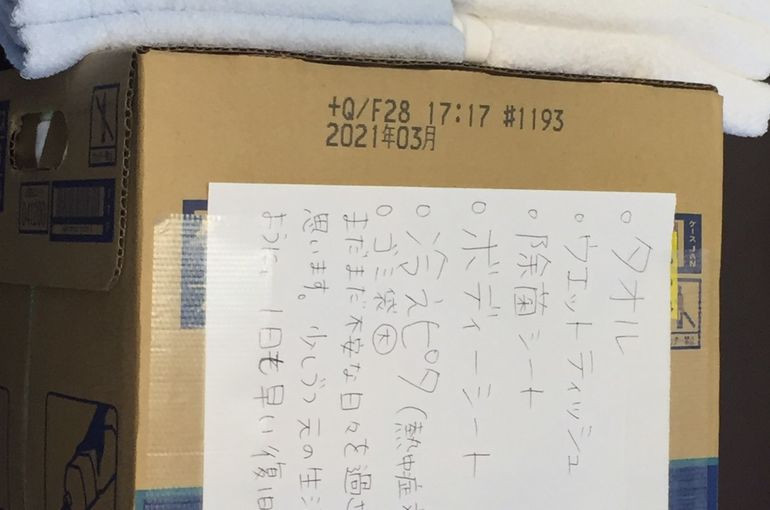 +Q/F28 17:17 #1193
2021年03月
ケースJAN
。タオル
。ウエットティッシュ
。除菌シート
。ボディーシート
。冷えピタ(熱中症
。ゴミ袋 大
まだまだ不安な日々を過
思います。少しづつ元の生
ように 1日も早い復旧